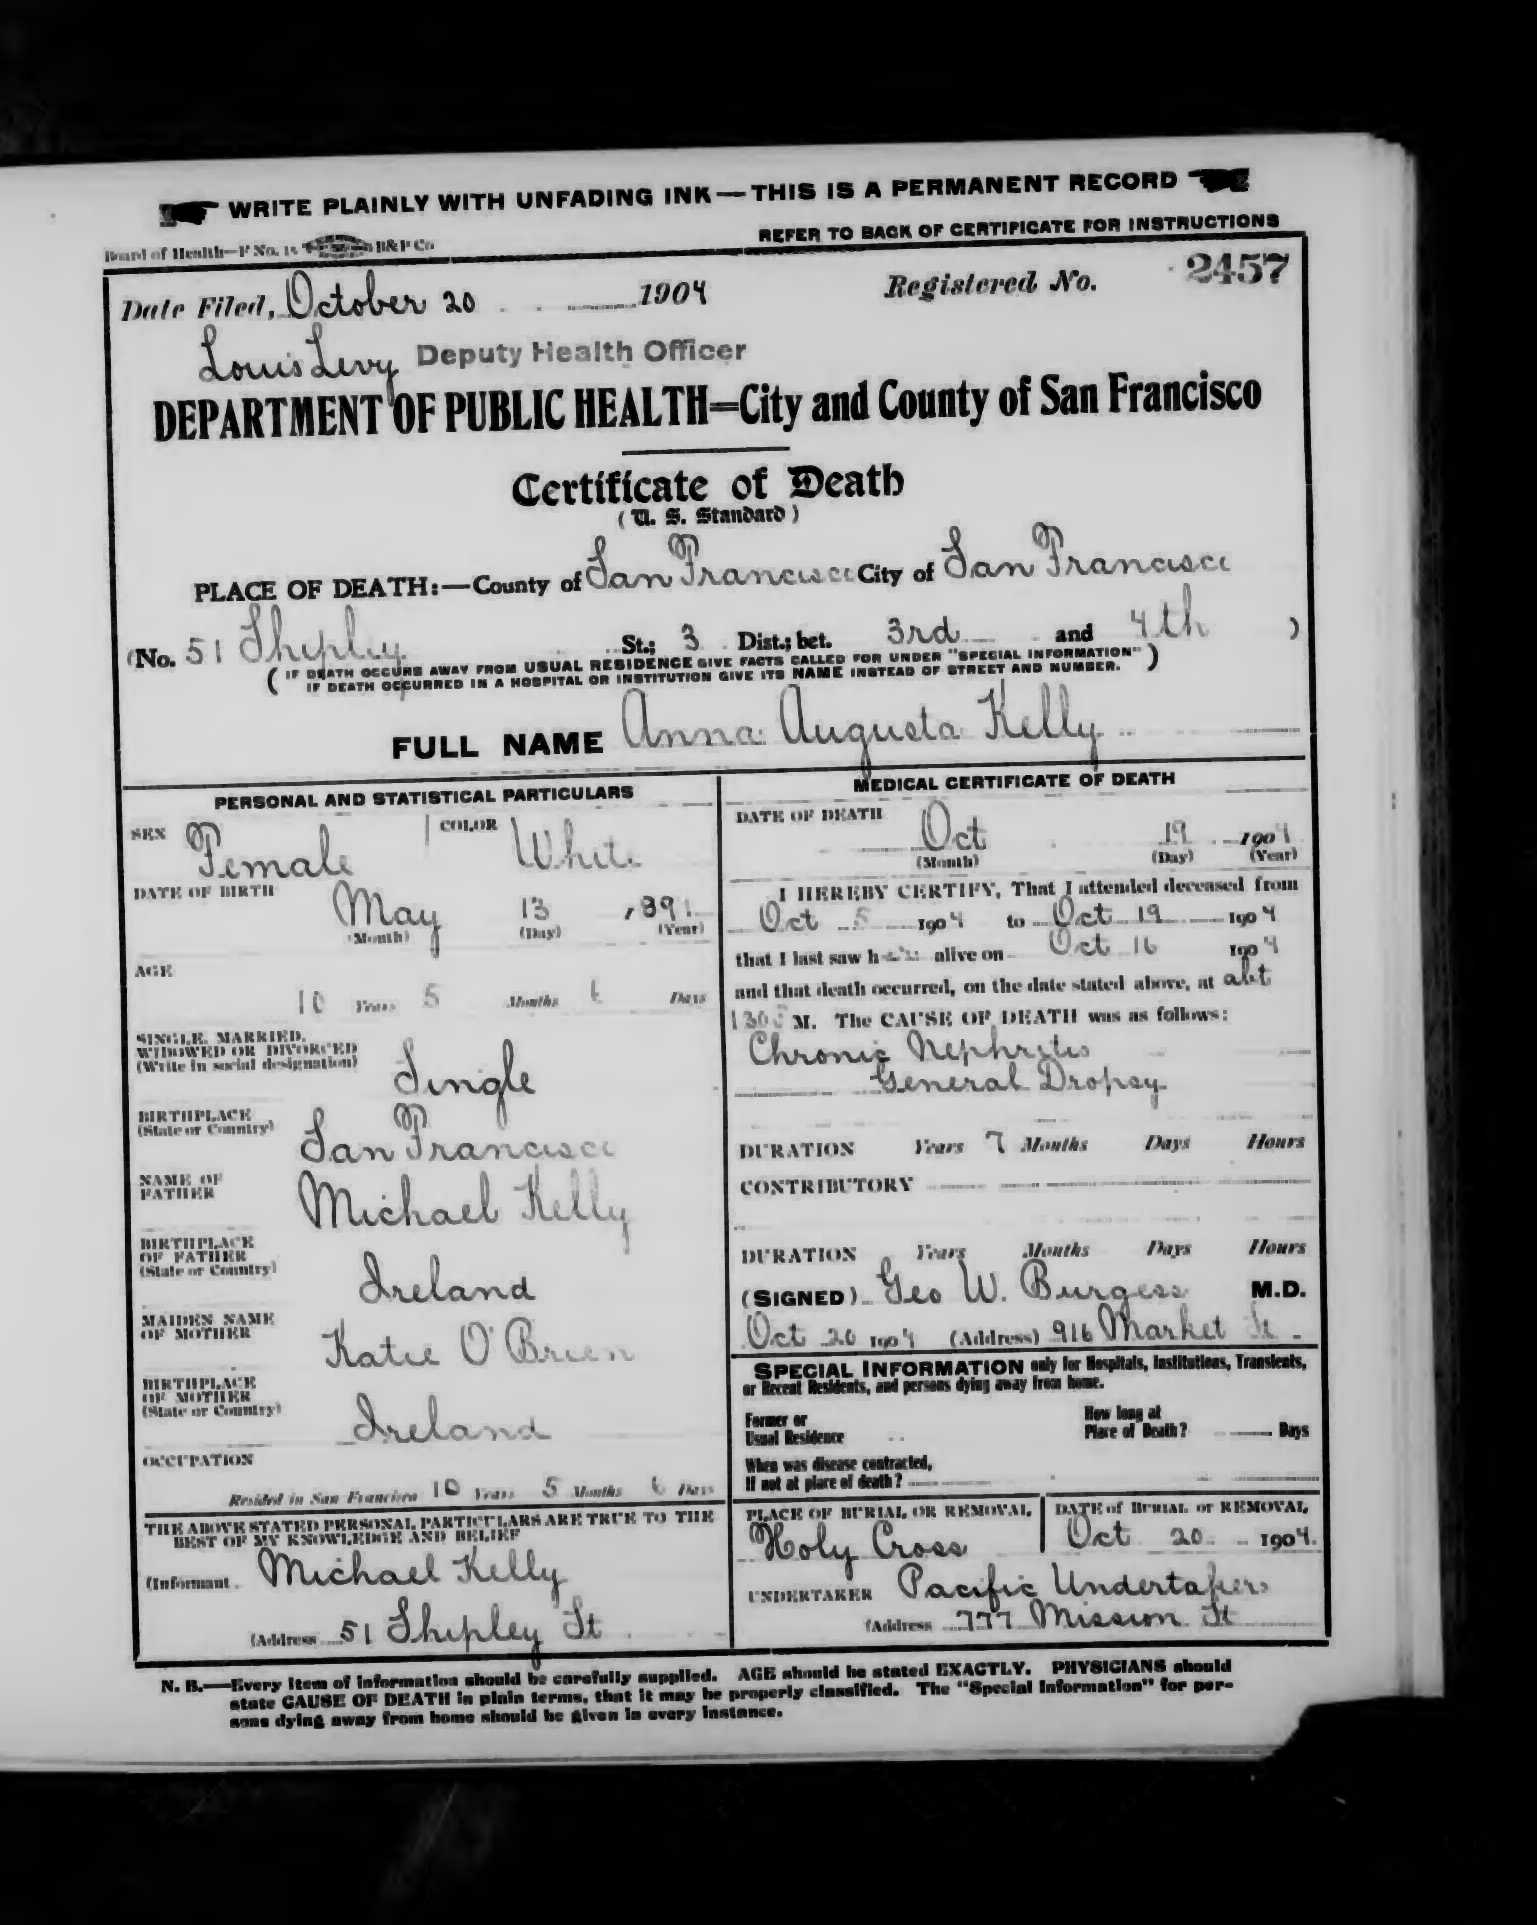 WRITE PLAINLY WITH UNFADING INK — THIS IS A PERMANENT RECORD
Board of Health—F No. 15 B&P Co
REFER TO BACK OF CERTIFICATE FOR INSTRUCTIONS
Date Filed, October 20 1904 Registered No. 2457
Louis Levy Deputy Health Officer
DEPARTMENT OF PUBLIC HEALTH=City and County of San Francisco
Certificate of Death
(U. S. Standard)
PLACE OF DEATH:—County of San Francisco City of San Francisco
(No. 51 Shipley St.; 3 Dist.; bet. 3rd and 4th )
( IF DEATH OCCURS AWAY FROM USUAL RESIDENCE GIVE FACTS CALLED FOR UNDER "SPECIAL INFORMATION" )
IF DEATH OCCURRED IN A HOSPITAL OR INSTITUTION GIVE ITS NAME INSTEAD OF STREET AND NUMBER.
FULL NAME Anna Augusta Kelly
PERSONAL AND STATISTICAL PARTICULARS
SEX Female COLOR White
DATE OF BIRTH May 13 , 891
(Month) (Day) (Year)
AGE
10 Years 5 Months 6 Days
SINGLE, MARRIED,
WIDOWED OR DIVORCED
(Write in social designation) Single
BIRTHPLACE
(State or Country) San Francisco
NAME OF
FATHER Michael Kelly
BIRTHPLACE
OF FATHER
(State or Country) Ireland
MAIDEN NAME
OF MOTHER Katie O'Brien
BIRTHPLACE
OF MOTHER
(State or Country) Ireland
OCCUPATION
Resided in San Francisco 10 Years 5 Months 6 Days
THE ABOVE STATED PERSONAL PARTICULARS ARE TRUE TO THE
BEST OF MY KNOWLEDGE AND BELIEF
(Informant Michael Kelly
(Address 51 Shipley St
MEDICAL CERTIFICATE OF DEATH
DATE OF DEATH Oct 19 1904
(Month) (Day) (Year)
I HEREBY CERTIFY, That I attended deceased from
Oct 5 1904 to Oct 19 1904
that I last saw h alive on Oct 16 1904
and that death occurred, on the date stated above, at abt
M. The CAUSE OF DEATH was as follows:
Chronic Nephritis
General Dropsy
DURATION Years 7 Months Days Hours
CONTRIBUTORY
DURATION Years Months Days Hours
(SIGNED) Geo W. Burgess M.D.
Oct 20 1904 (Address) 916 Market St
SPECIAL INFORMATION only for Hospitals, Institutions, Transients,
or Recent Residents, and persons dying away from home.
Former or
Usual Residence
How long at
Place of Death? Days
When was disease contracted,
If not at place of death?
PLACE OF BURIAL OR REMOVAL
Holy Cross
DATE of BURIAL or REMOVAL
Oct 20 1904
UNDERTAKER Pacific Undertakers
(Address 777 Mission St
N. B.—Every item of information should be carefully supplied. AGE should be stated EXACTLY. PHYSICIANS should
state CAUSE OF DEATH in plain terms, that it may be properly classified. The "Special Information" for per-
sons dying away from home should be given in every instance.